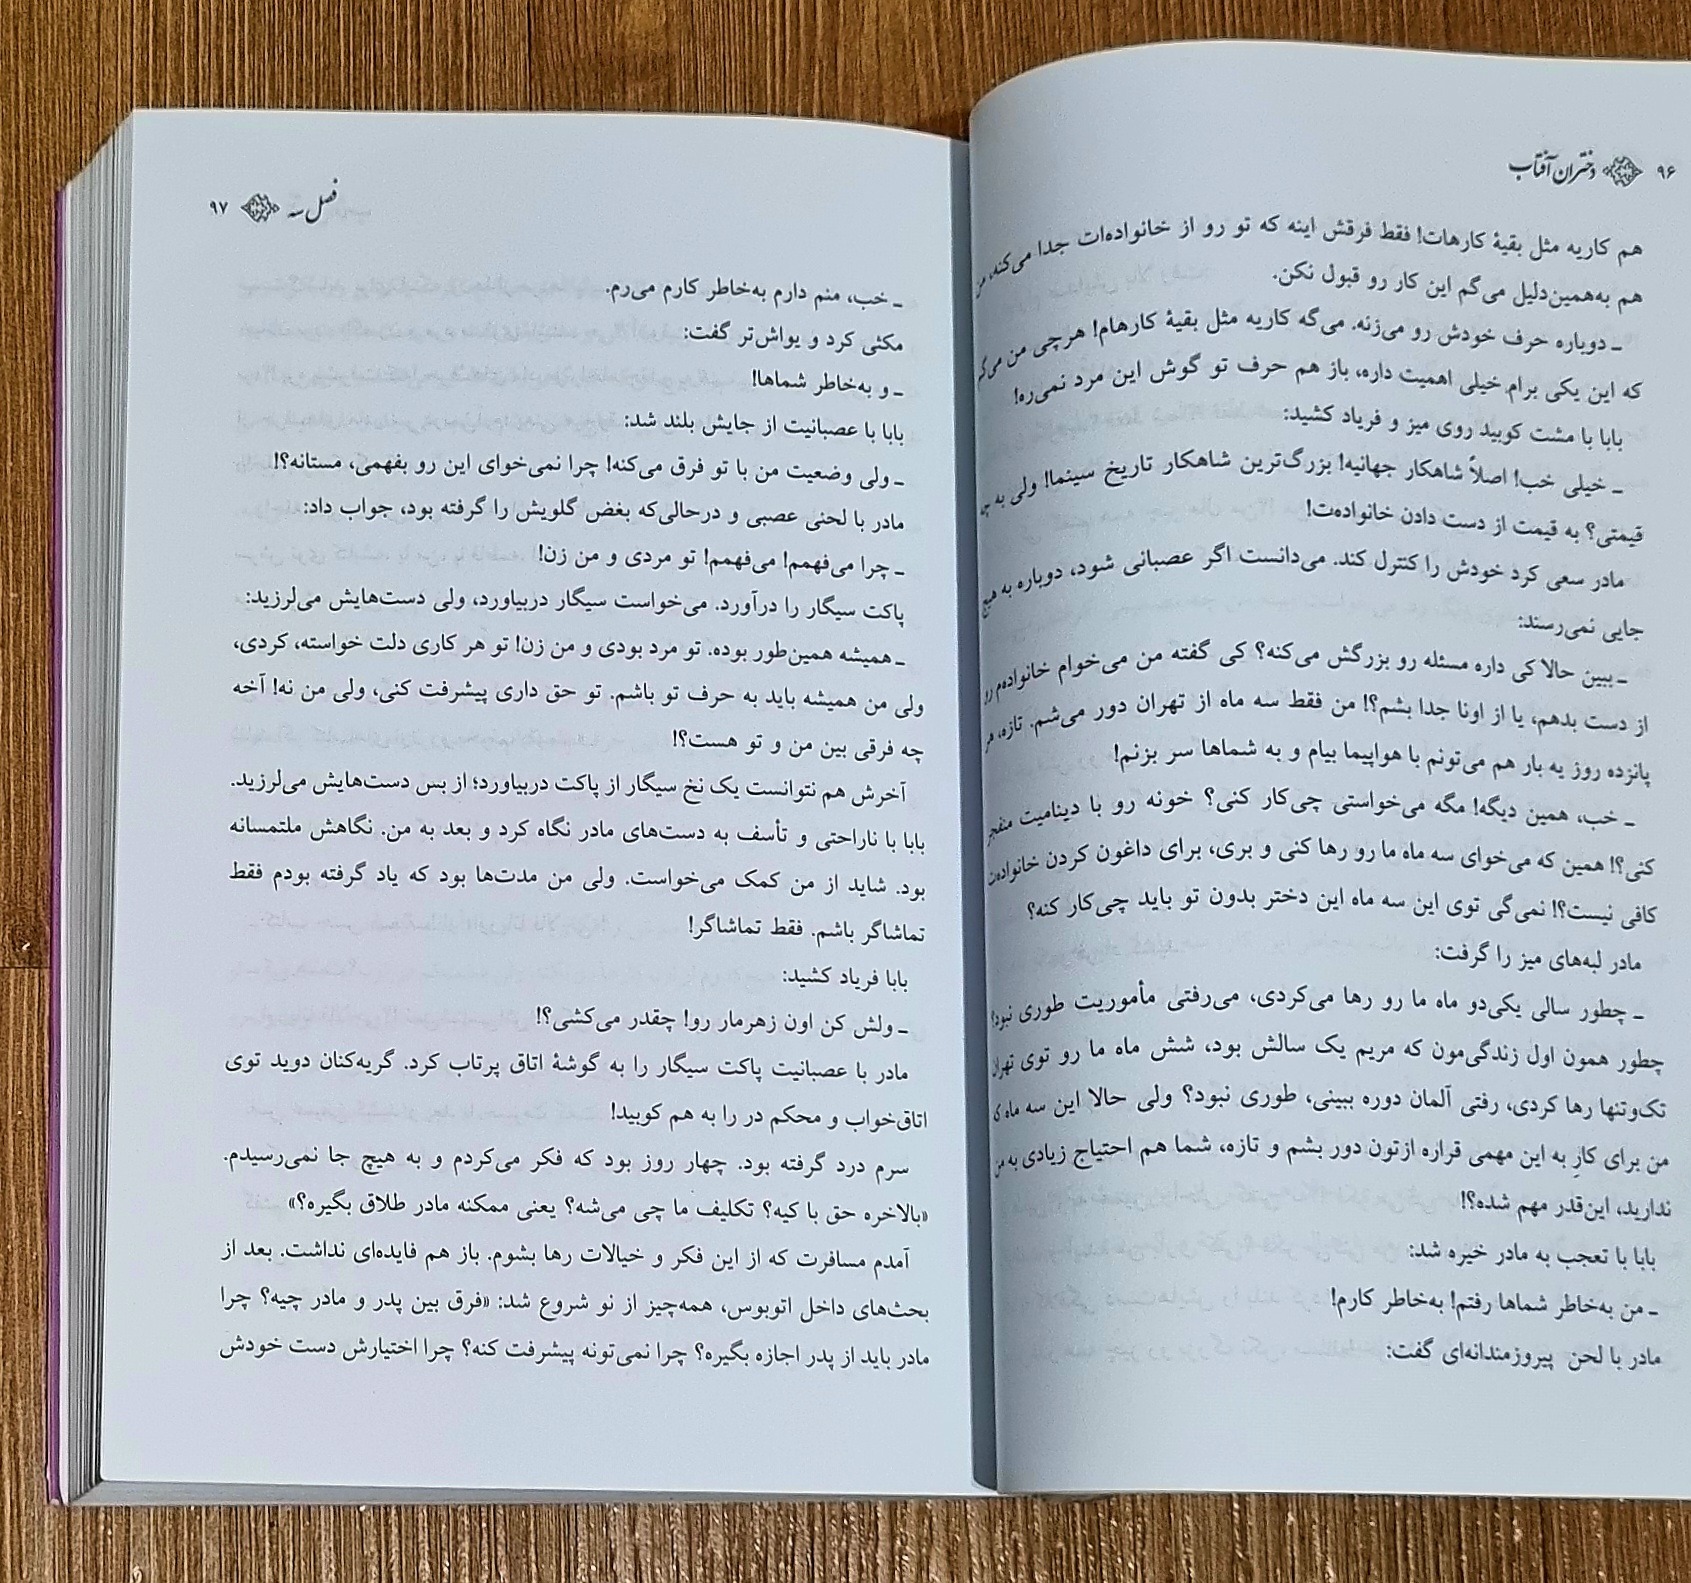 ۹۶ دختران آفتاب
هم کاریه مثل بقیهٔ کارهات! فقط فرقش اینه که تو رو از خانواده‌ات جدا می‌کنه، من
هم به‌همین‌دلیل می‌گم این کار رو قبول نکن.
ـ دوباره حرف خودش رو می‌زنه. می‌گه کاریه مثل بقیهٔ کارهام! هرچی من می‌گم
که این یکی برام خیلی اهمیت داره، باز هم حرف تو گوش این مرد نمی‌ره!
بابا با مشت کوبید روی میز و فریاد کشید:
ـ خیلی خب! اصلاً شاهکار جهانیه! بزرگ‌ترین شاهکار تاریخ سینما! ولی به چه
قیمتی؟ به قیمت از دست دادن خانواده‌ت!
مادر سعی کرد خودش را کنترل کند. می‌دانست اگر عصبانی شود، دوباره به هیچ
جایی نمی‌رسند:
ـ ببین حالا کی داره مسئله رو بزرگش می‌کنه؟ کی گفته من می‌خوام خانواده‌م رو
از دست بدهم، یا از اونا جدا بشم؟! من فقط سه ماه از تهران دور می‌شم. تازه، هر
پانزده روز یه بار هم می‌تونم با هواپیما بیام و به شماها سر بزنم!
ـ خب، همین دیگه! مگه می‌خواستی چی‌کار کنی؟ خونه رو با دینامیت منفجر
کنی؟! همین که می‌خوای سه ماه ما رو رها کنی و بری، برای داغون کردن خانواده‌ت
کافی نیست؟! نمی‌گی توی این سه ماه این دختر بدون تو باید چی‌کار کنه؟
مادر لبه‌های میز را گرفت:
ـ چطور سالی یکی‌دو ماه ما رو رها می‌کردی، می‌رفتی مأموریت طوری نبود؟
چطور همون اول زندگی‌مون که مریم یک سالش بود، شش ماه ما رو توی تهران
تک‌وتنها رها کردی، رفتی آلمان دوره ببینی، طوری نبود؟ ولی حالا این سه ماه که
من برای کارِ به این مهمی قراره ازتون دور بشم و تازه، شما هم احتیاج زیادی به من
ندارید، این‌قدر مهم شده؟!
بابا با تعجب به مادر خیره شد:
ـ من به‌خاطر شماها رفتم! به‌خاطر کارم!
مادر با لحن پیروزمندانه‌ای گفت:
فصل سه ۹۷
ـ خب، منم دارم به‌خاطر کارم می‌رم.
مکثی کرد و یواش‌تر گفت:
ـ و به‌خاطر شماها!
بابا با عصبانیت از جایش بلند شد:
ـ ولی وضعیت من با تو فرق می‌کنه! چرا نمی‌خوای این رو بفهمی، مستانه؟!
مادر با لحنی عصبی و درحالی‌که بغض گلویش را گرفته بود، جواب داد:
ـ چرا می‌فهمم! می‌فهمم! تو مردی و من زن!
پاکت سیگار را درآورد. می‌خواست سیگار دربیاورد، ولی دست‌هایش می‌لرزید:
ـ همیشه همین‌طور بوده. تو مرد بودی و من زن! تو هر کاری دلت خواسته، کردی،
ولی من همیشه باید به حرف تو باشم. تو حق داری پیشرفت کنی، ولی من نه! آخه
چه فرقی بین من و تو هست؟!
آخرش هم نتوانست یک نخ سیگار از پاکت دربیاورد؛ از بس دست‌هایش می‌لرزید.
بابا با ناراحتی و تأسف به دست‌های مادر نگاه کرد و بعد به من. نگاهش ملتمسانه
بود. شاید از من کمک می‌خواست. ولی من مدت‌ها بود که یاد گرفته بودم فقط
تماشاگر باشم. فقط تماشاگر!
بابا فریاد کشید:
ـ ولش کن اون زهرمار رو! چقدر می‌کشی؟!
مادر با عصبانیت پاکت سیگار را به گوشهٔ اتاق پرتاب کرد. گریه‌کنان دوید توی
اتاق‌خواب و محکم در را به هم کوبید!
سرم درد گرفته بود. چهار روز بود که فکر می‌کردم و به هیچ جا نمی‌رسیدم.
«بالاخره حق با کیه؟ تکلیف ما چی می‌شه؟ یعنی ممکنه مادر طلاق بگیره؟»
آمدم مسافرت که از این فکر و خیالات رها بشوم. باز هم فایده‌ای نداشت. بعد از
بحث‌های داخل اتوبوس، همه‌چیز از نو شروع شد: «فرق بین پدر و مادر چیه؟ چرا
مادر باید از پدر اجازه بگیره؟ چرا نمی‌تونه پیشرفت کنه؟ چرا اختیارش دست خودش